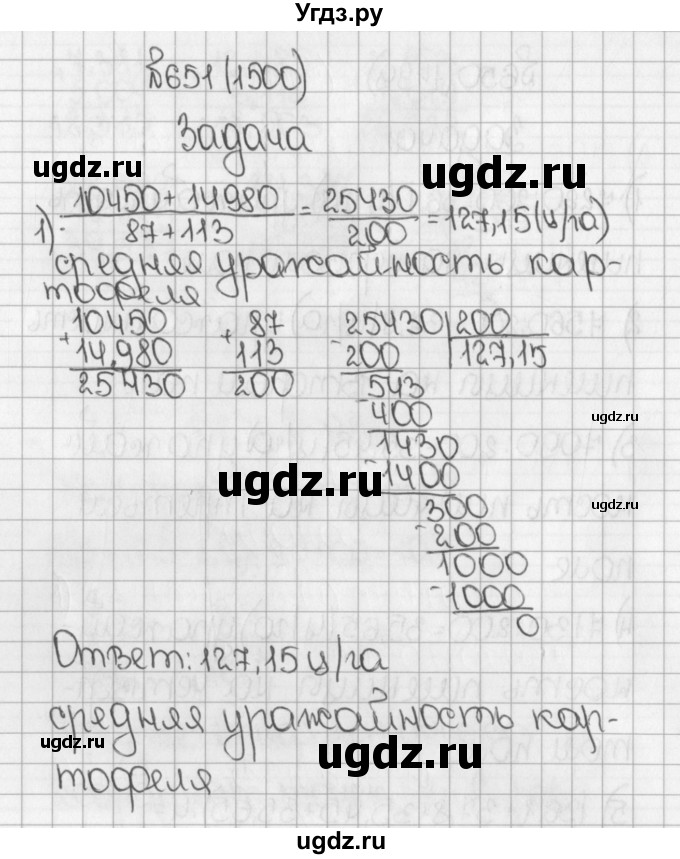 Угдз.ру
№651 (1500)
Задача
ugdz.ru
ugdz.ru
1) (10450+14980)/(87+113) = 25430/200 = 127,15 (ц/га)
средняя урожайность кар-
тофеля
10450 87 25430 200
+14.980 +113 -200 127,15
25430 200 543
-400
ugdz.ru
1430
ugdz.ru
-1400
300
-200
1000
-1000
0
Ответ: 127,15 ц/га
средняя урожайность кар-
ugdz.ru
ugdz.ru
ugdz.ru
тофеля
ugdz.ru